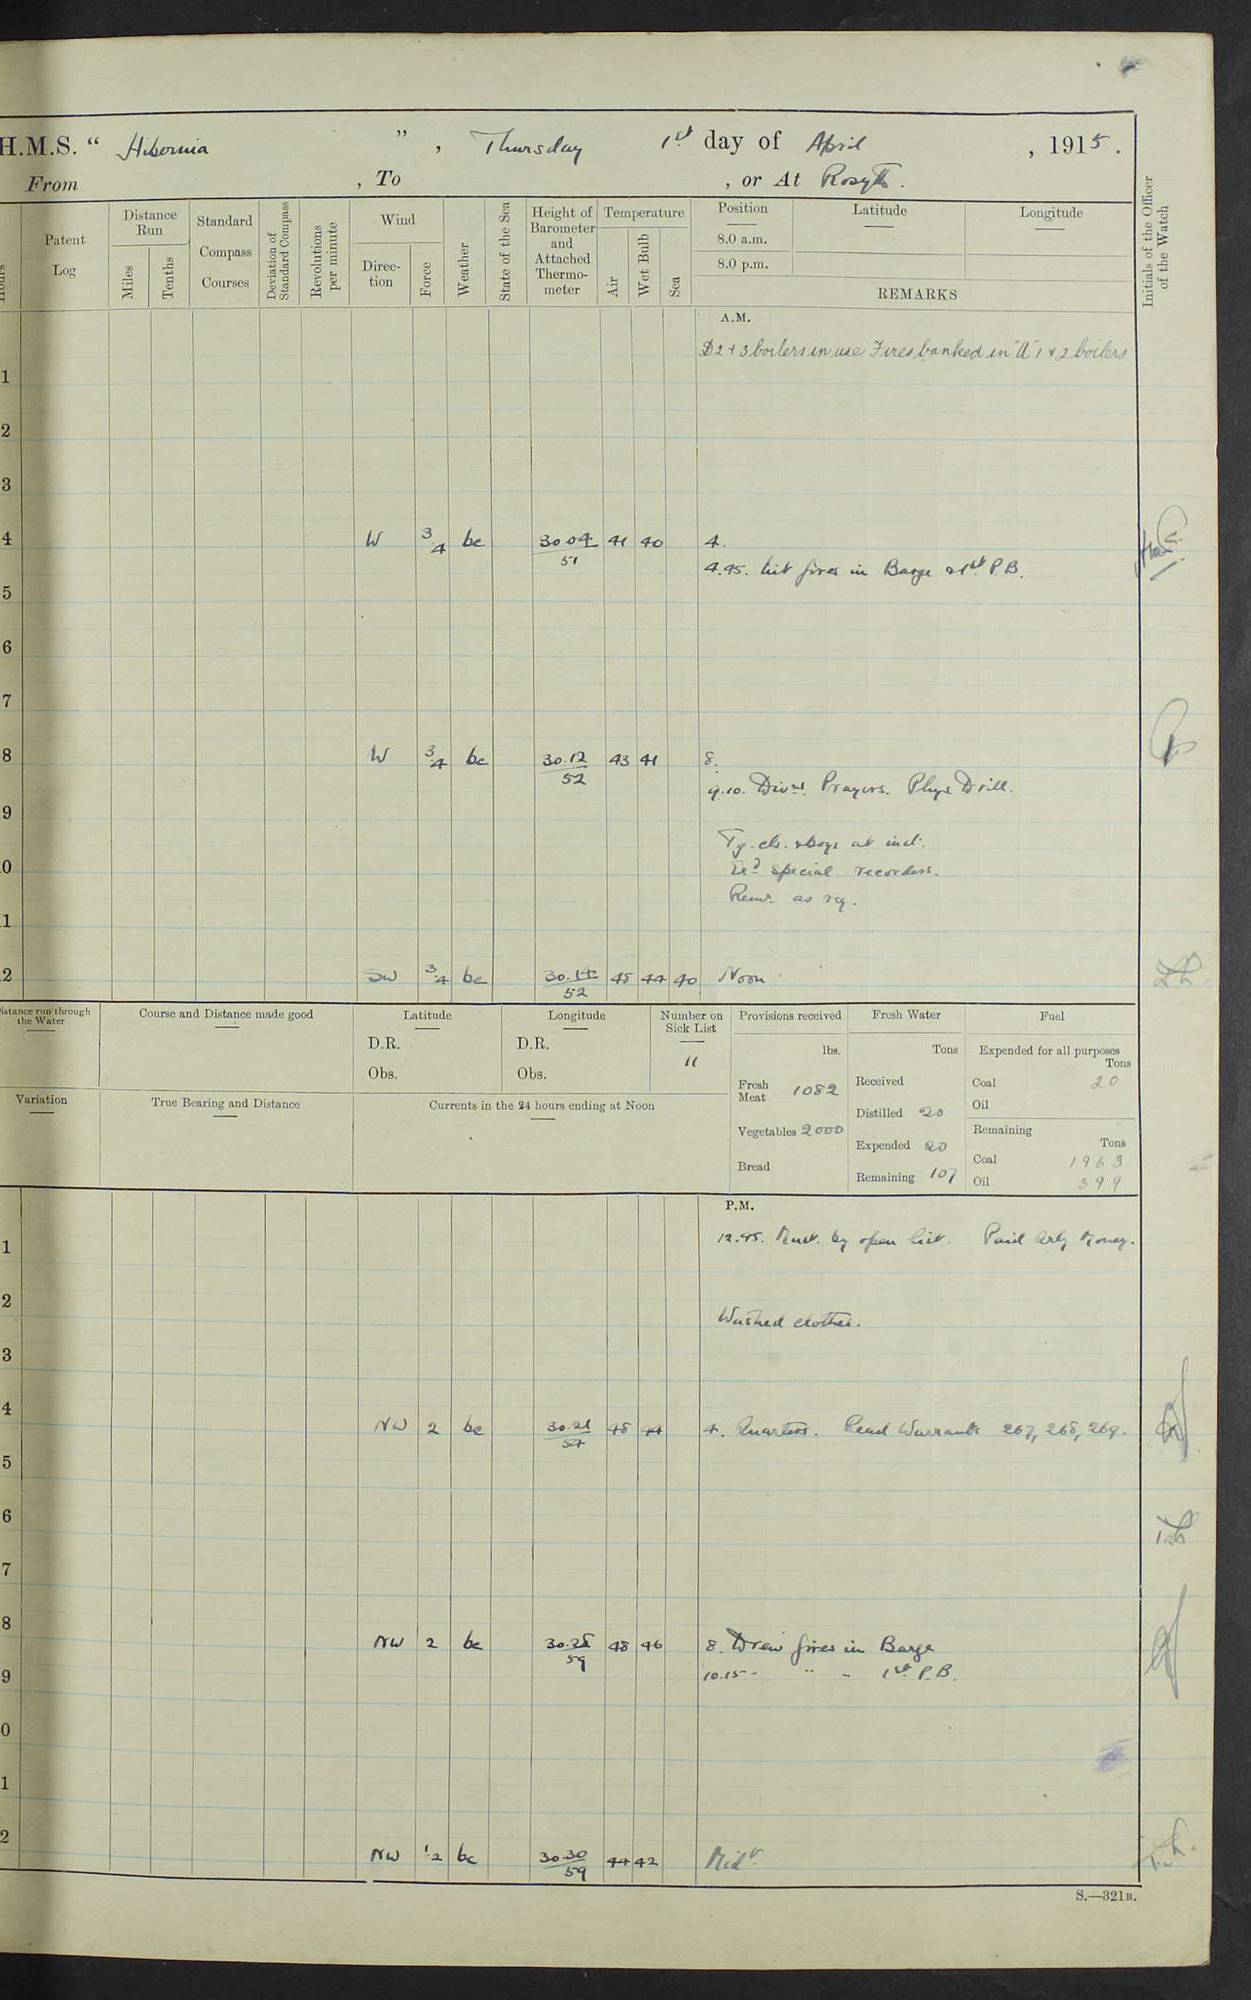 H.M.S. " Hibernia ", Thursday 1st day of April, 1915.
From , To , or At Rosyth.
Hours
Patent Log
Distance Run
Miles
Tenths
Standard Compass Courses
Deviation of Standard Compass
Revolutions per minute
Wind
Direction
Force
Weather
State of the Sea
Height of Barometer and Attached Thermometer
Temperature
Air
Wet Bulb
Sea
Position
8.0 a.m.
8.0 p.m.
Latitude
Longitude
REMARKS
Initials of the Officer of the Watch
A.M.
D 2 + 3 boilers in use Fires banked in "A" 1 + 2 boilers
1
2
3
4 W 3.4 bc 30.04/51 41 40 4.
4.45. Lit fires in Barge & 1st P.B.
5
6
7
8 W 3.4 bc 30.12/52 43 41 8.
9.10. Divns. Prayers. Phys Drill.
9
Tg. cls. & boys at inst.
0 special recorders.
as rq.
1
2 SW 3.4 bc 30.14/52 45 44 40 Noon
Distance run through the Water
Course and Distance made good
Latitude
D.R.
Obs.
Longitude
D.R.
Obs.
Number on Sick List
11
Provisions received
lbs.
Fresh Meat 1082
Vegetables 2000
Bread
Fresh Water
Tons
Received
Distilled 20
Expended 20
Remaining 107
Fuel
Expended for all purposes
Tons
Coal 20
Oil
Remaining
Tons
Coal 1963
Oil 399
Variation
True Bearing and Distance
Currents in the 24 hours ending at Noon
P.M.
12.45. Must. by open list. Paid Money.
1
2
Washed clothes.
3
4 NW 2 bc 30.21/57 48 44 4. Quarters. Read Warrants 267, 268, 269.
5
6
7
8 NW 2 bc 30.28/59 48 46 8. Drew fires in Barge
10.15 - " - 1st P.B.
9
0
1
2 NW 1.2 bc 30.30/59 44 42 Midt.
S.—321B.